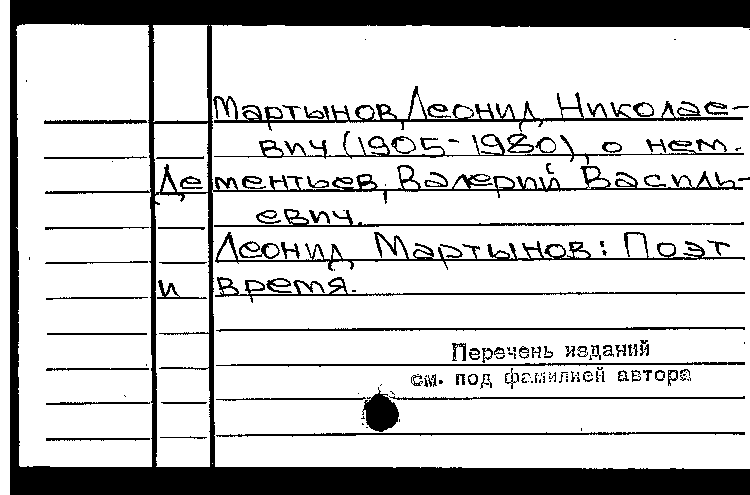 Мартынов, Леонид Николае-
вич (1905-1980), о нем.
Дементьев, Валерий Василь-
евич.
Леонид Мартынов: Поэт
и время.
Перечень изданий
см. под фамилией автора